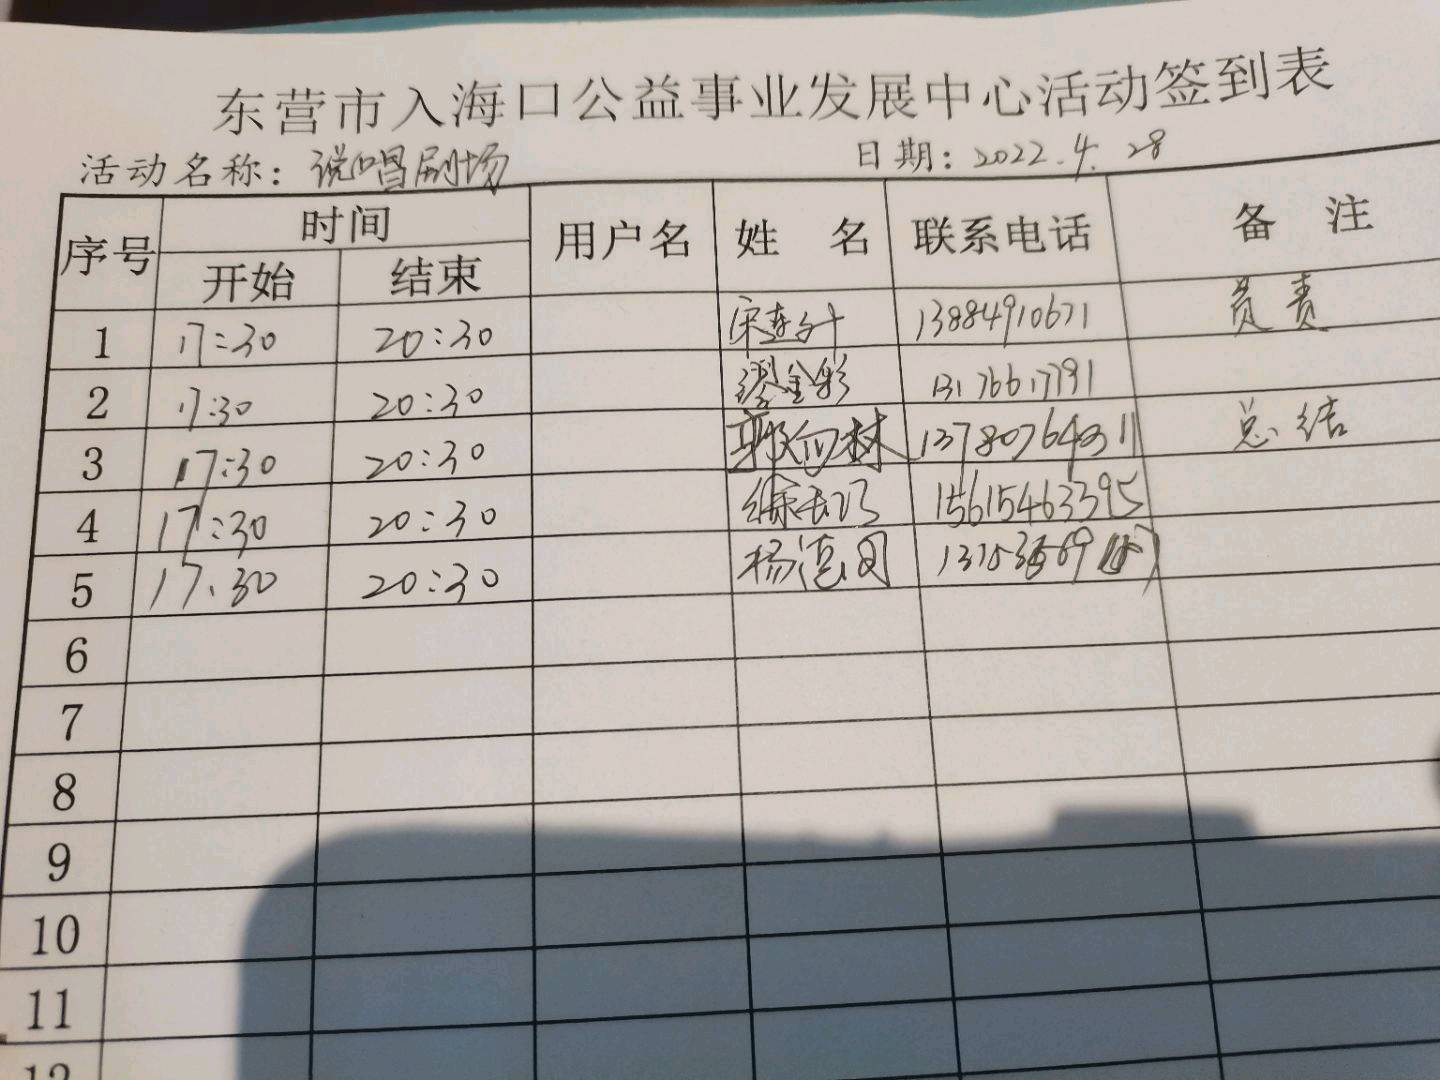 东营市入海口公益事业发展中心活动签到表
活动名称：说唱剧场 日期：2022.4.28
序号 时间 用户名 姓 名 联系电话 备 注
开始 结束
1 17:30 20:30 13884910671 负责
2 17:30 20:30 缪金彩 13176617791
3 17:30 20:30 郭向林 总结
4 17:30 20:30 15615463395
5 17:30 20:30
6
7
8
9
10
11
12